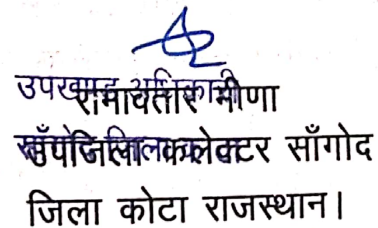 उपखण्ड अधिकारी
रामावतार मीणा
उपजिला कलेक्टर साँगोद
जिला कोटा राजस्थान।